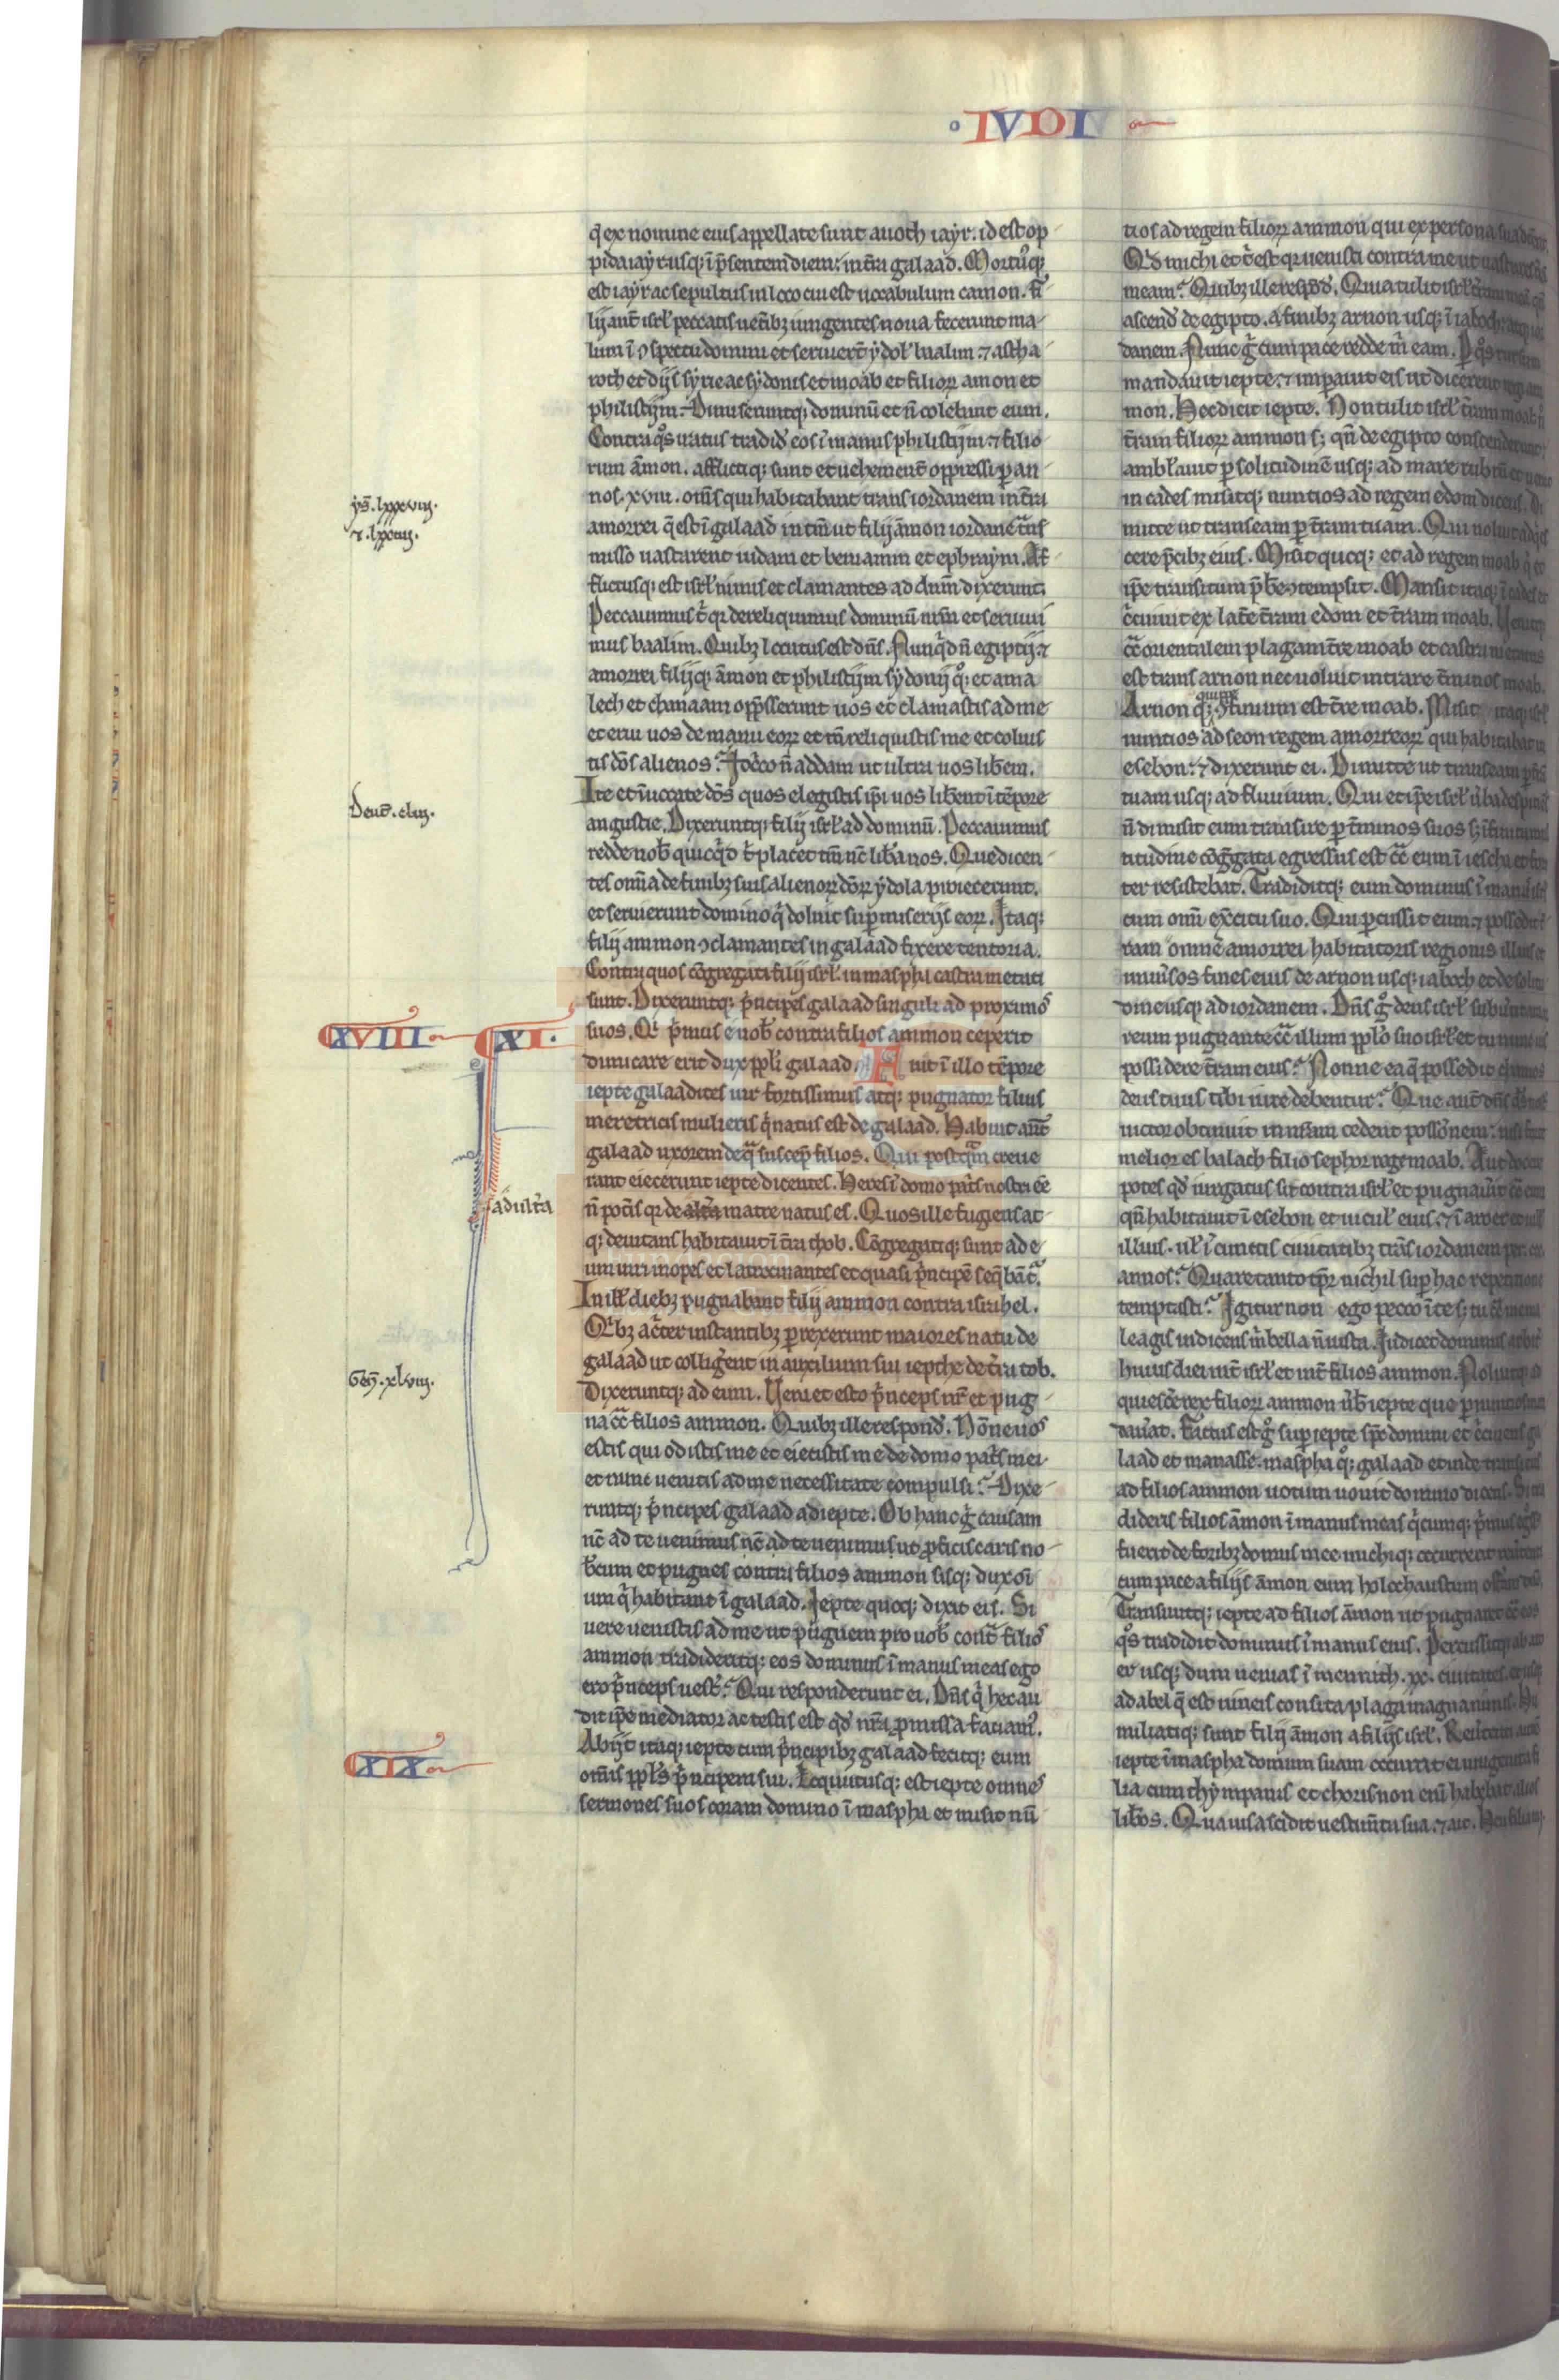 IVDI
q̄ ex nomine eius appellate sunt auoth iayr. id est op
pida iayr usq; ī p̄sentem diem: in t̄ra galaad. Mortuꝰq;
est iayr ac sepultus in loco cui est uocabulum camon. fi
lij aut̄ isrl̄ peccatis uet̄ibz iungentes noua fecerunt ma
lum ī ɔspectu domini et seruiert̄ ydol̄ baalim ⁊ astha
roth et dijs syrie ac sydonis et moab et filioꝝ amon et
philistijm. Dimiseruntq; dominū et n̄ colebant eum.
Contra q̊s iratus tradid̄ eos ī manus philistijm ⁊ filio
rum āmon. afflictiq; sunt et uehement̄ oppressi p̱ an
nos .xviii. om̄s qui habitabant trans iordanem in t̄ra
amorrei q̄ est ī galaad in tm̄ ut filij āmon iordane t̄ns
misso uastarent iudam et beniamin et ephraym. Af
flictusq; est isrl̄ nimis et clamantes ad dn̄m dixerunt.
Peccauimus t̄ qr dereliquimus dominū nr̄m et seruiui
mus baalim. Quibz locutus est dn̄s. Nunqͥd n̄ egiptij ⁊
amorrei filijq; āmon et philistijm sydonij q̊; et ama
lech et chanaam opp̄sserunt uos et clamastis ad me
et erui uos de manu eoꝝ et tn̄ reliquistis me et coluis
tis dōs alienos? Idcͦco n̄ addam ut ultra uos lib̄em.
Ite et īuocate dōs quos elegistis ip̄i uos lib̄ent ī tēpore
angustie. Dixeruntq; filij isrl̄ ad dominū. Peccauimus
redde nob̄ quicqͥd t̄ placet tm̄ nc̄ lib̄a nos. Que dicen
tes omīa de finibz suis alienoꝝ dōꝝ ydola proiecerunt.
et seruierunt domino qͥ doluit sup̱ miserijs eoꝝ. Itaq;
filij ammon ɔclamantes in galaad fixere tentoria.
Contra quos cōgregati filij isrl̄ in maspha castra metati
sunt. Dixeruntq; pͥncipes galaad singuli ad proximos
suos. Qͥ pͥmus e uob̄ contra filios ammon ceperit
dimicare erit dux ppl̄i galaad. Fuit ī illo tēpore
iepte galaadites uir fortissimus atq; pugnator filius
meretricis mulieris qͥ natus est de galaad. Habuit aut̄
galaad uxorem de qͣ suscep̄ filios. Qui postqͣm creue
rant eiecerunt iepte dicentes. Heres ī domo pat̄s nostri ēē
n̄ pot̄is qr de alt̄a matre natus es. Quos ille fugiens at
q; deuitans habitauit ī t̄ra thob. Cōgregatiq; sunt ad e
um uiri inopes et latrocinantes et quasi pͥncipē seq̄bāt͛.
In ill̄ diebz pugnabant filij ammon contra israhel.
Qͥbz ac̄ter instantibz p̱rexerunt maiores natu de
galaad ut collig̱ent in auxilium sui iepthe de t̄ra tob.
Dixeruntq; ad eum. Veni et esto pͥnceps nr̄ et pug
na cͣ filios ammon. Quibz ille respond̄. Nōne uos
estis qui odistis me et eiecistis me de domo pat̄s mei
et nunc uenitis ad me necessitate compulsi? Dixe
runtq; pͥncipes galaad ad iepte. Ob hanc g̊ causam
nc̄ ad te uenimus nc̄ ad te uenimus ut proficiscaris no
b̄cum et pugnes contra filios ammon sisq; dux oi
um qͥ habitant ī galaad. Iepte quoq; dixit eis. Si
uere uenistis ad me ut pugnem pro uob̄ contͣ filios
ammon tradideritq; eos dominus ī manus meas ego
ero pͥnceps uest̄? Qui responderunt ei. Dn̄s qͥ hec au
dit ip̄e mediator ac testis est qd̄ nr̄a promissa faciamꝰ.
Abijt itaq; iepte cum pͥncipibz galaad fecitq; eum
om̄is ppl̄s pͥncipem sui. Locutusq; est iepte omnes
sermones suos coram domino ī maspha et misit nū
ys̄. lxxxviij.
⁊ . lxxiiij.
Deut̄. cliij.
XVIII
XI.
adult̄a
Gen̄. xlviij.
XIX
tios ad regem filioꝝ ammon qui ex persona sua
Qͥd michi et t̄ est qr uenisti contra me ut
meam? Quibz ille respōd̄. Quia tulit isrl̄ t̄ram meā
ascend̄ de egipto. a finibz arnon usq; ī iaboch
danem. Nunc g̊ cum pace redde m̄ eam. P̱ q̊s rursum
mandauit iepte ⁊ imp̱auit eis ut dicerent
mon. Hec dicit iepte. Non tulit isrl̄ t̄ram moab
t̄ram filioꝝ ammon s; qn̄ de egipto conscenderunt
ambl̄auit p̱ solitudinē usq; ad mare rubrū et
in cades misitq; nuntios ad regem edom dicens. Di
mitte ut transeam p̱ t̄ram tuam. Qui noluit
cere p̄cibz eius. Misit quoq; et ad regem moab
ip̄e transitum p̄be ɔtempsit. Mansit itaq; ī cades et
cͥcuiuit ex lat̄e t̄ram edom et t̄ram moab.
cͣ orientalem plagam t̄re moab et castra metatus
est trans arnon nec uoluit intrare t̄minos moab.
Arnon q̊; ɔfinium est t̄re moab. Misit itaq; isrl̄
nuntios ad seon regem amorreoꝝ qui habitabat in
esebon: ⁊ dixerunt ei. Dimitte ut transeam p̱ t̄ram
tuam usq; ad fluuium. Qui et ip̄e isrl̄
n̄ dimisit eum transire p̱ t̄minos suos s;
titudine cōg̱gata egressus est cͣ eum ī iescha et
ter resistebat. Tradiditq; eum dominus ī manus
cum omi ex̱citu suo. Qui p̱cussit eum ⁊ possedit
ram omnē amorrei habitatoris regionis illius et
uniu̱sos fines eius de arnon usq; iaboch et de
dine usq; ad iordanem. Dn̄s g̊ deus isrl̄
reum pugnante cͣ illum ppl̄o suo isrl̄ et tu nunc uis
possidere t̄ram eius? Nonne ea q̄ possedit chamos
deus tuus tibi iure debentur? Que aut̄ dn̄s
uictor obtinuit in nr̄am cedent possōnem: nisi
melior es balach filio sephor rege moab. Aut docere
potes qd̄ iurgatus sit contra isrl̄ et pugnau̱it
qn̄ habitauit ī esebon et uicul̄ eius ⁊ ī aroer et
illius. ul̄ ī cunctis ciuitatibz trās iordanem
annos? Quare tanto tp̱r nichil sup̱ hac
temptasti? Igitur non ego pecco ī te s;
le agis indicens m̄ bella n̄ iusta. Iudicet dominus
huius diei int̄ isrl̄ et int̄ filios ammon. Noluitq;
quiesc̄e rex filioꝝ ammon u̱b̄ iepte que p̱ nuntios
dau̱at. Factus est g̊ sup̱ iepte sp̄s domini et cͥcuiens
laad et manasse. maspha q̊; galaad et inde
ad filios ammon uotum uouit domino dicens. Si
dideris filios āmon ī manus meas qͥcumq; pͥmus
fuerit de foribz domus mee michiq; occurrerit
cum pace a filijs āmon eum holochaustum
Transiuitq; iepte ad filios āmon ut pugnaret
q̊s tradidit dominus ī manus eius. Percussitq; ab aro
er usq; dum uenias ī mennith .xx. ciuitates
ad abel q̄ est uineis consita plaga magna nimis. Hu
miliatiq; sunt filij āmon a filijs isrl̄.
iepte ī maspha domum suam occurrit ei unigenita fi
lia cum thympanis et choris non eni habebat alios
lib̄os. Qua uisa scidit uestim̄ta sua ⁊ ait. Heu filia